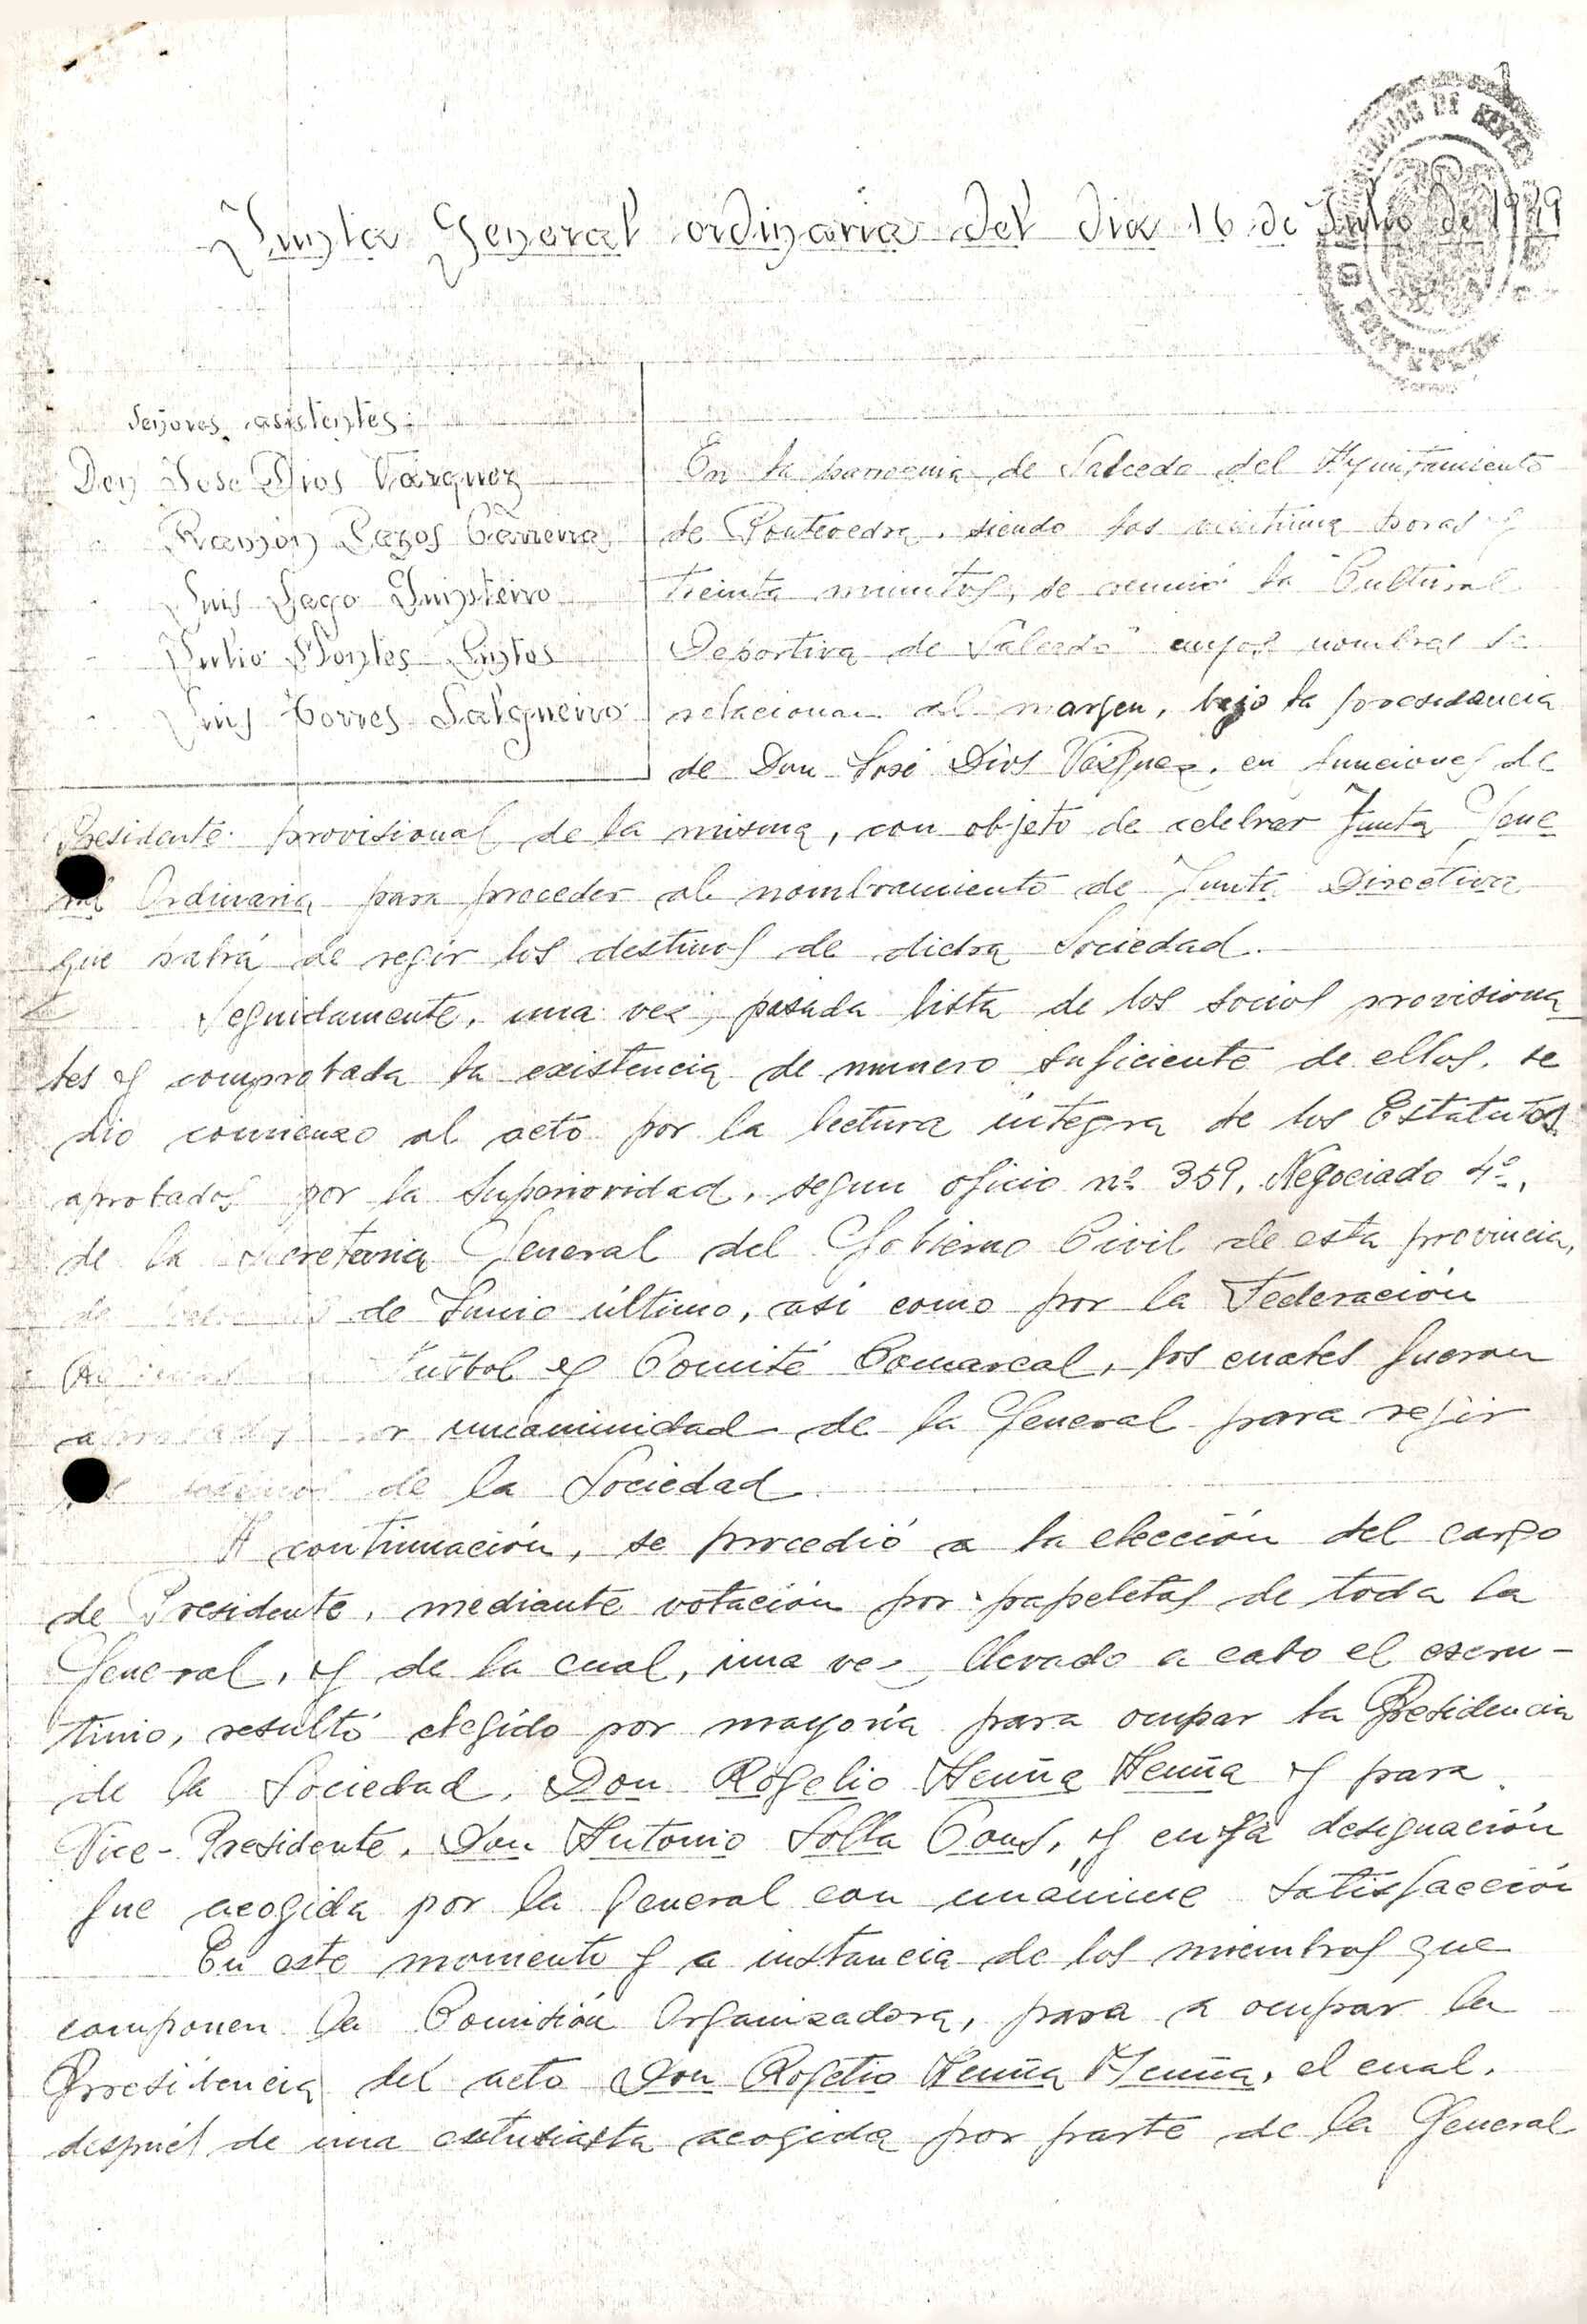 Junta General ordinaria del dia 16 de Julio de 1949
Señores asistentes:
Don Jose Dios Vázquez
" Ramón Pazos Carrera
" Luis Lago Quinteiro
" Julio Montes Pintos
" Luis Torres Salgueiro
En la parroquia de Salcedo del Ayuntamiento
de Pontevedra, siendo las veintiuna horas y
treinta minutos, se reunió la "Cultural
Deportiva de Salcedo" cuyos nombres se
relacionan al margen, bajo la presidencia
de Don José Dios Vázquez, en funciones de
Presidente provisional de la misma, con objeto de celebrar Junta Gene
ral Ordinaria para proceder al nombramiento de Junta Directiva
que habrá de regir los destinos de dicha Sociedad.
Seguidamente, una vez pasada lista de los socios provisiona
les y comprobada la existencia de numero suficiente de ellos, se
dio comienzo al acto por la lectura integra de los Estatutos
aprobados por la Superioridad, segun oficio nº 359, Negociado 4º,
de la Secretaria General del Gobierno Civil de esta provincia,
de Junio último, asi como por la Federación
Futbol y Comité Comarcal, los cuales fueron
aprobados por unanimidad de la General para regir
de la Sociedad.
A continuación, se procedió a la elección del cargo
de Presidente, mediante votación por papeletas de toda la
General, y de la cual, una vez llevado a cabo el escru-
tinio, resultó elegido por mayoría para ocupar la Presidencia
de la Sociedad, Don Rogelio Acuña Acuña y para
Vice-Presidente, Don Antonio Solla Cons, y cuya designación
fue acogida por la General con unánime satisfacción
En este momento y a instancia de los miembros que
componen la Comisión Organizadora, pasa a ocupar la
Presidencia del acto Don Rogelio Acuña Acuña, el cual,
después de una entusiasta acogida por parte de la General